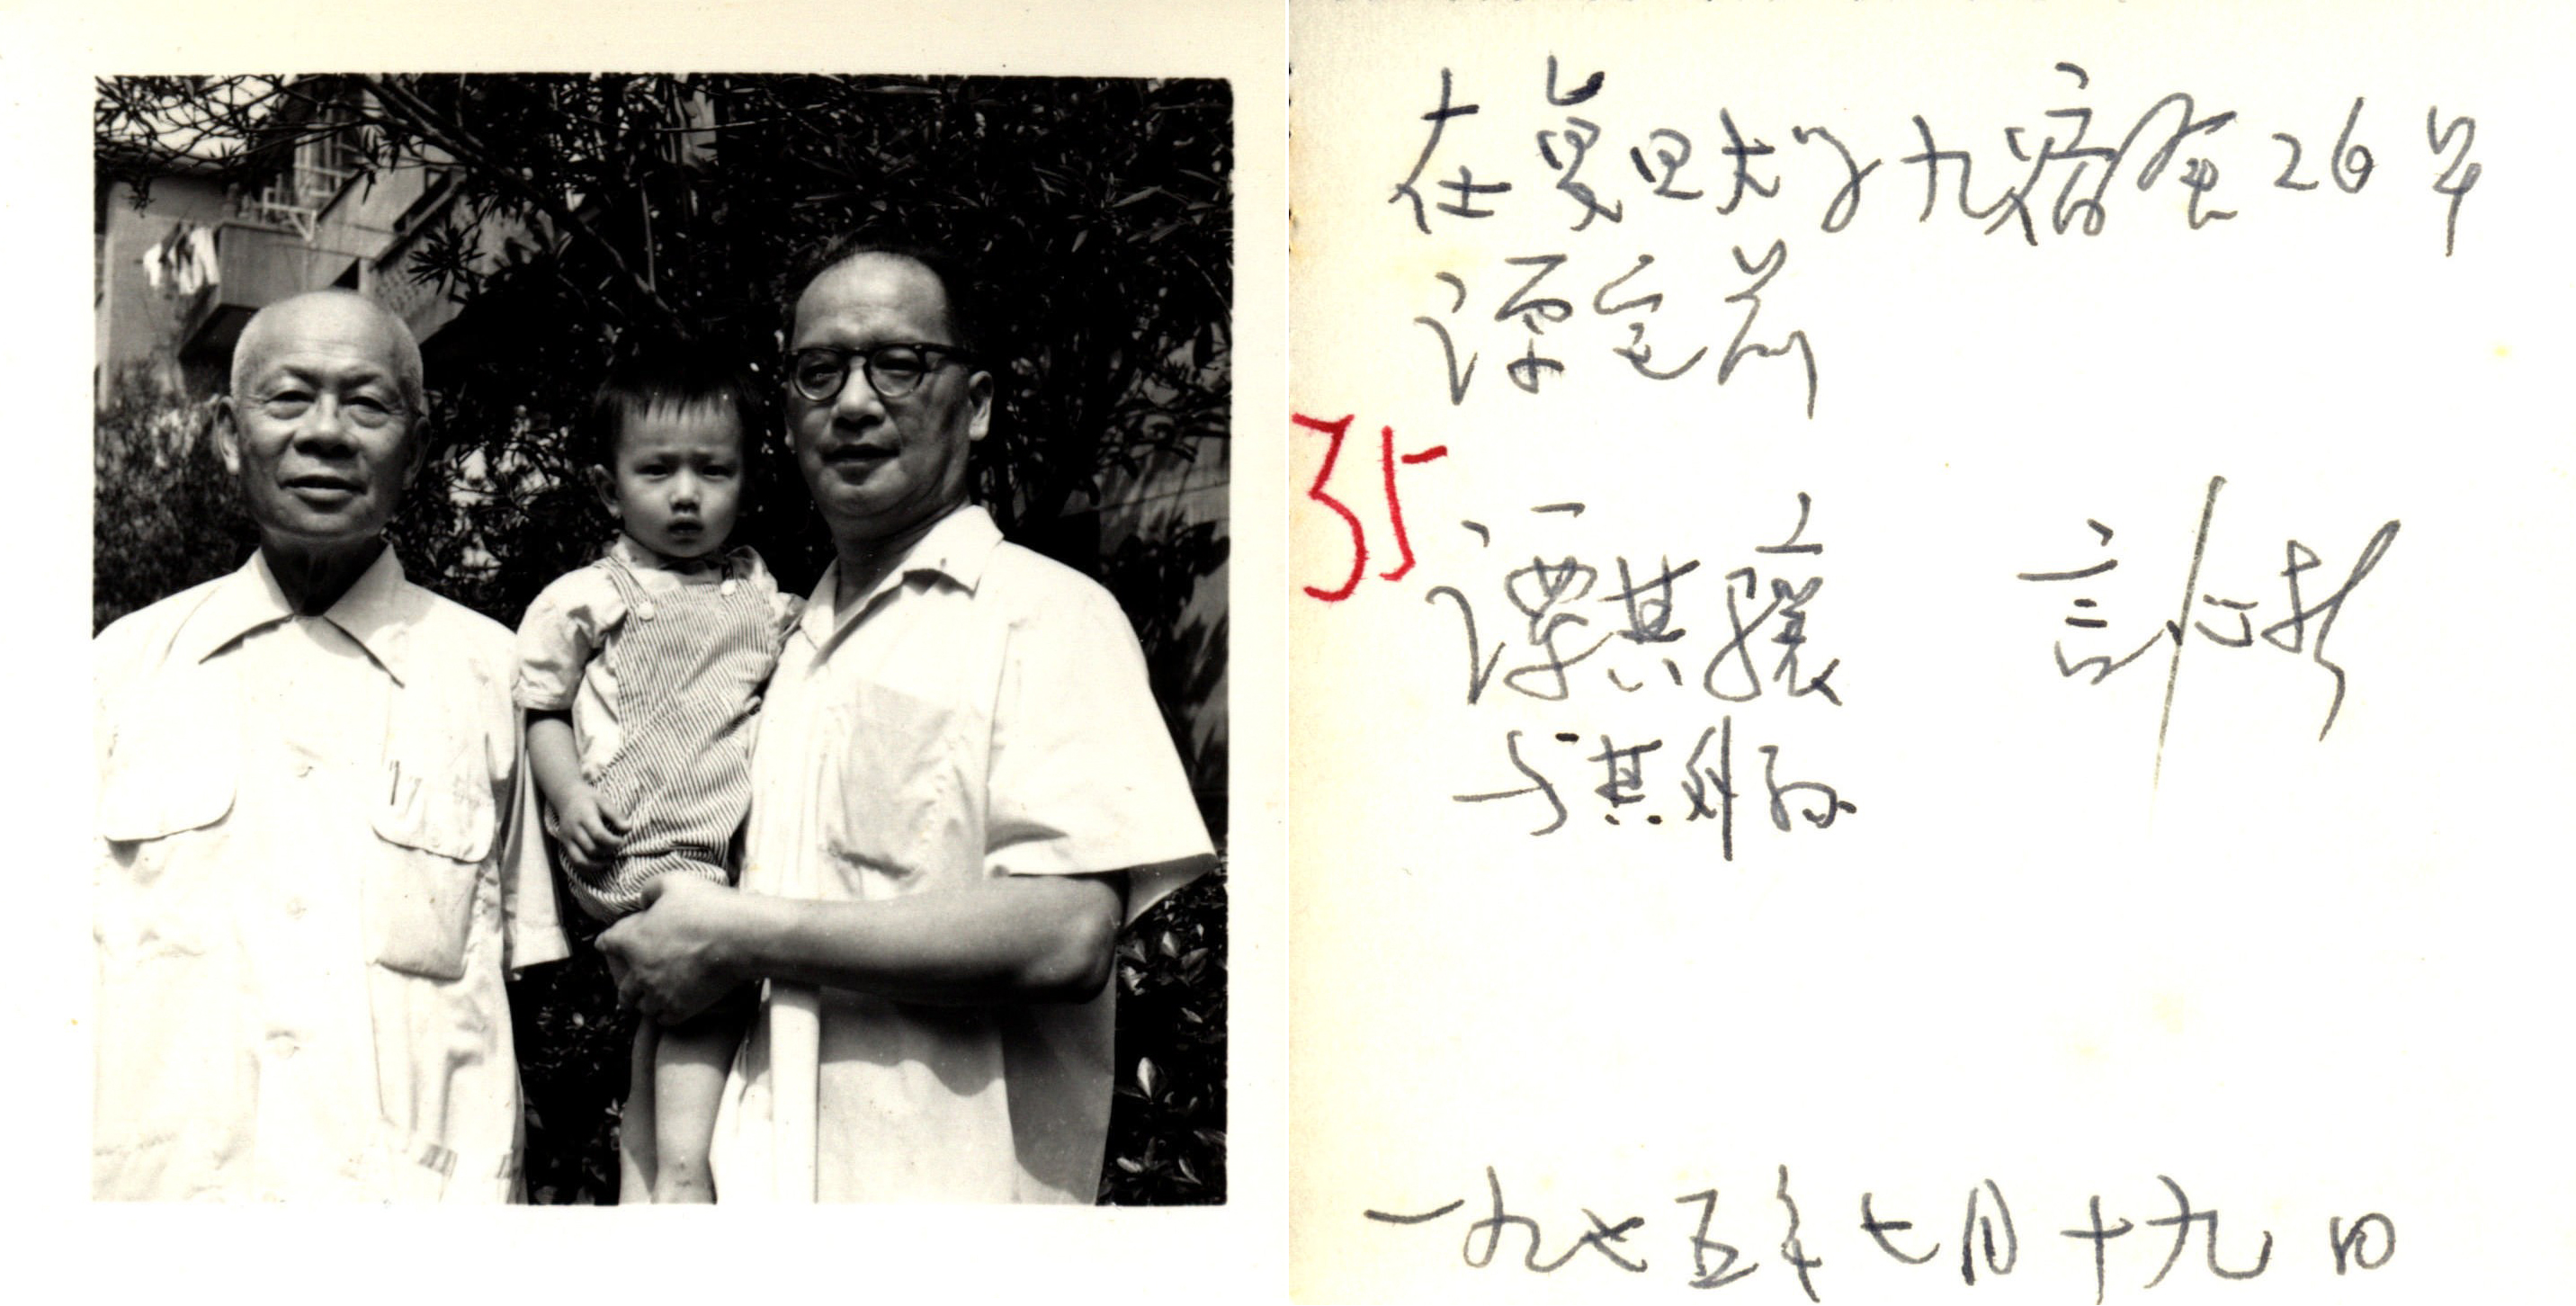 在复旦大学九宿舍26号
谭宅前
35
谭其骧
与其外孙
一九七五年七月十九日